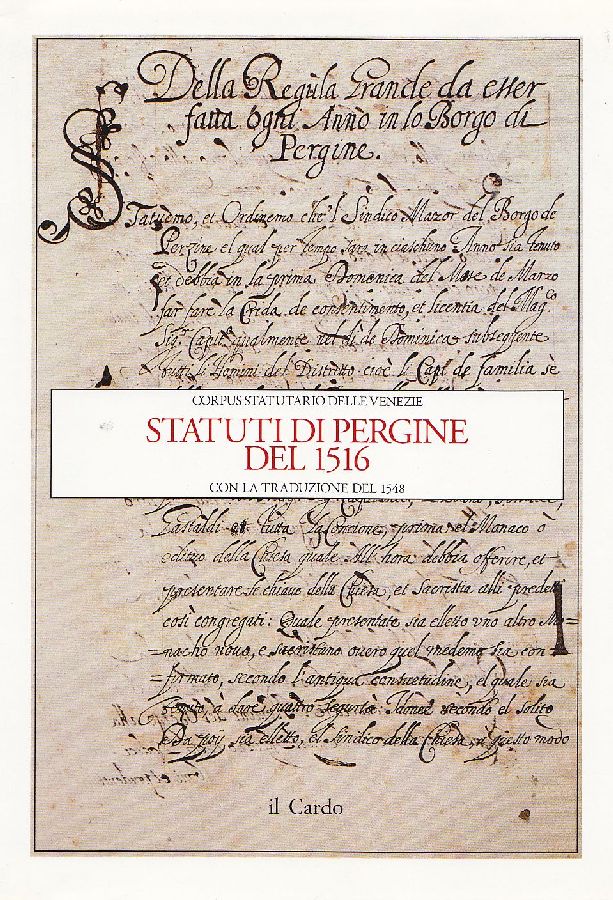 Della Regula Grande da esser
fatta ogni Anno in lo Borgo di
Pergine.
Statuemo, et Ordinemo che'l Sindico Mazor del Borgo de
Perzine el qual per tempo sara in ciaschuno Anno sia tenuto
et debbia in la prima Domenica del Mese de Marzo
far fare la Crida de consentimento, et licentia del Mag.co
Sig.r Capit. qualmente nel di de Dominica subseguente
tutti li Homini del Distritto cioè li Capi de familia sè
CORPUS STATUTARIO DELLE VENEZIE
STATUTI DI PERGINE
DEL 1516
CON LA TRADUZIONE DEL 1548
Gastaldi et tutta la Concione, prima el Monaco ò
della Chiesa quale All'hora debbia offerire, et
presentare le chiave della Chiesa, et Sacrestia alli predetti
così congregati: Quale presentate sia elletto uno altro Mo=
=nacho novo, e overo quel medemo sia con=
=firmato, secondo l'antiqua consuetudine, el quale sia
tenuto à dare quattro segurtà Idonee secondo el solito
Da poy sia elletto, el Sindico della Chiesa, a questo modo
il Cardo